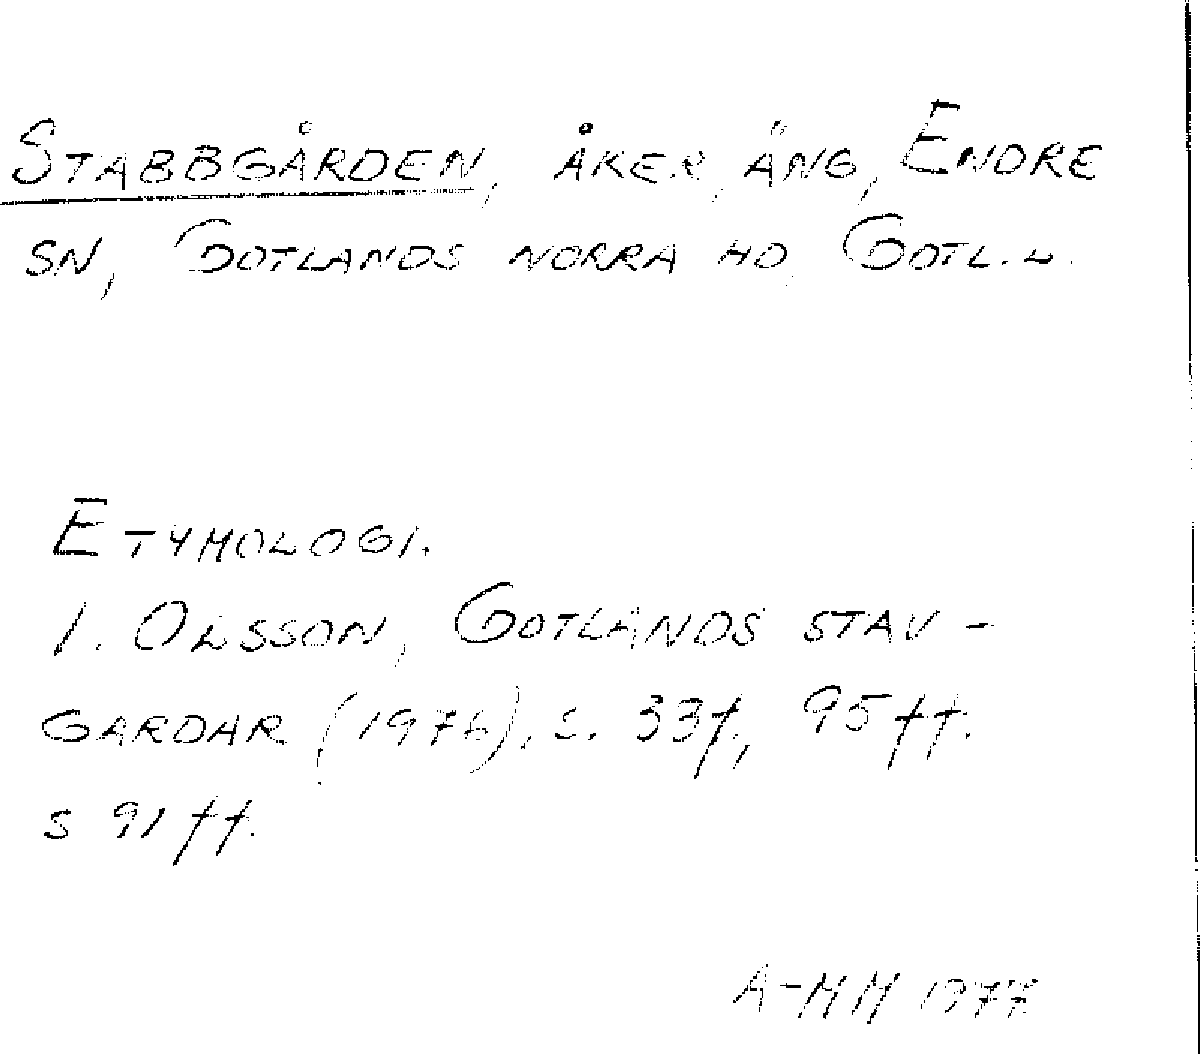 STABBGÅRDEN, ÅKER, ÄNG, ENDRE
SN, GOTLANDS NORRA HD, GOTL. L.
ETYMOLOGI.
I. OLSSON, GOTLANDS STAV-
GARDAR (1976), S. 33f., 95ff.
S 91ff.
A-MM 1977